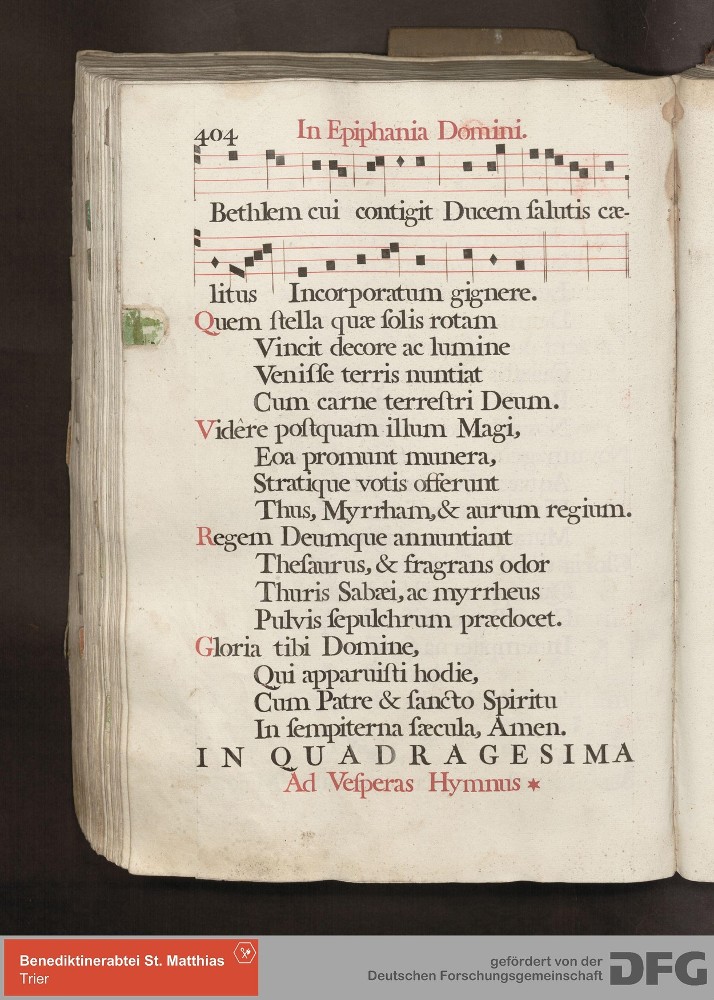 404 In Epiphania Domini.
Bethlem cui contigit Ducem ſalutis cæ-
litus Incorporatum gignere.
Quem ſtella quæ ſolis rotam
Vincit decore ac lumine
Veniſſe terris nuntiat
Cum carne terreſtri Deum.
Vidêre poſtquam illum Magi,
Eoa promunt munera,
Stratique votis offerunt
Thus, Myrrham, & aurum regium.
Regem Deumque annuntiant
Theſaurus, & fragrans odor
Thuris Sabæi, ac myrrheus
Pulvis ſepulchrum prædocet.
Gloria tibi Domine,
Qui apparuiſti hodie,
Cum Patre & ſancto Spiritu
In ſempiterna ſæcula, Amen.
IN QUADRAGESIMA
Ad Veſperas Hymnus *
Benediktinerabtei St. Matthias
Trier
gefördert von der
Deutschen Forschungsgemeinschaft
DFG